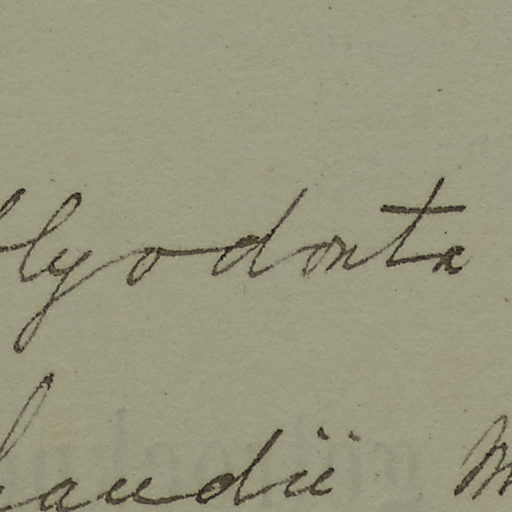 lyodonta
audii M